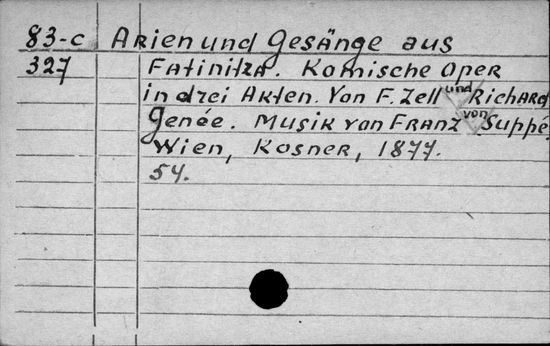 83-c Arien und Gesänge aus
327 Fatinitza. Komische Oper
in drei Akten. Von F. Zell und Richard
Genée. Musik von Franz von Suppé
Wien, Kosner, 1877.
54.